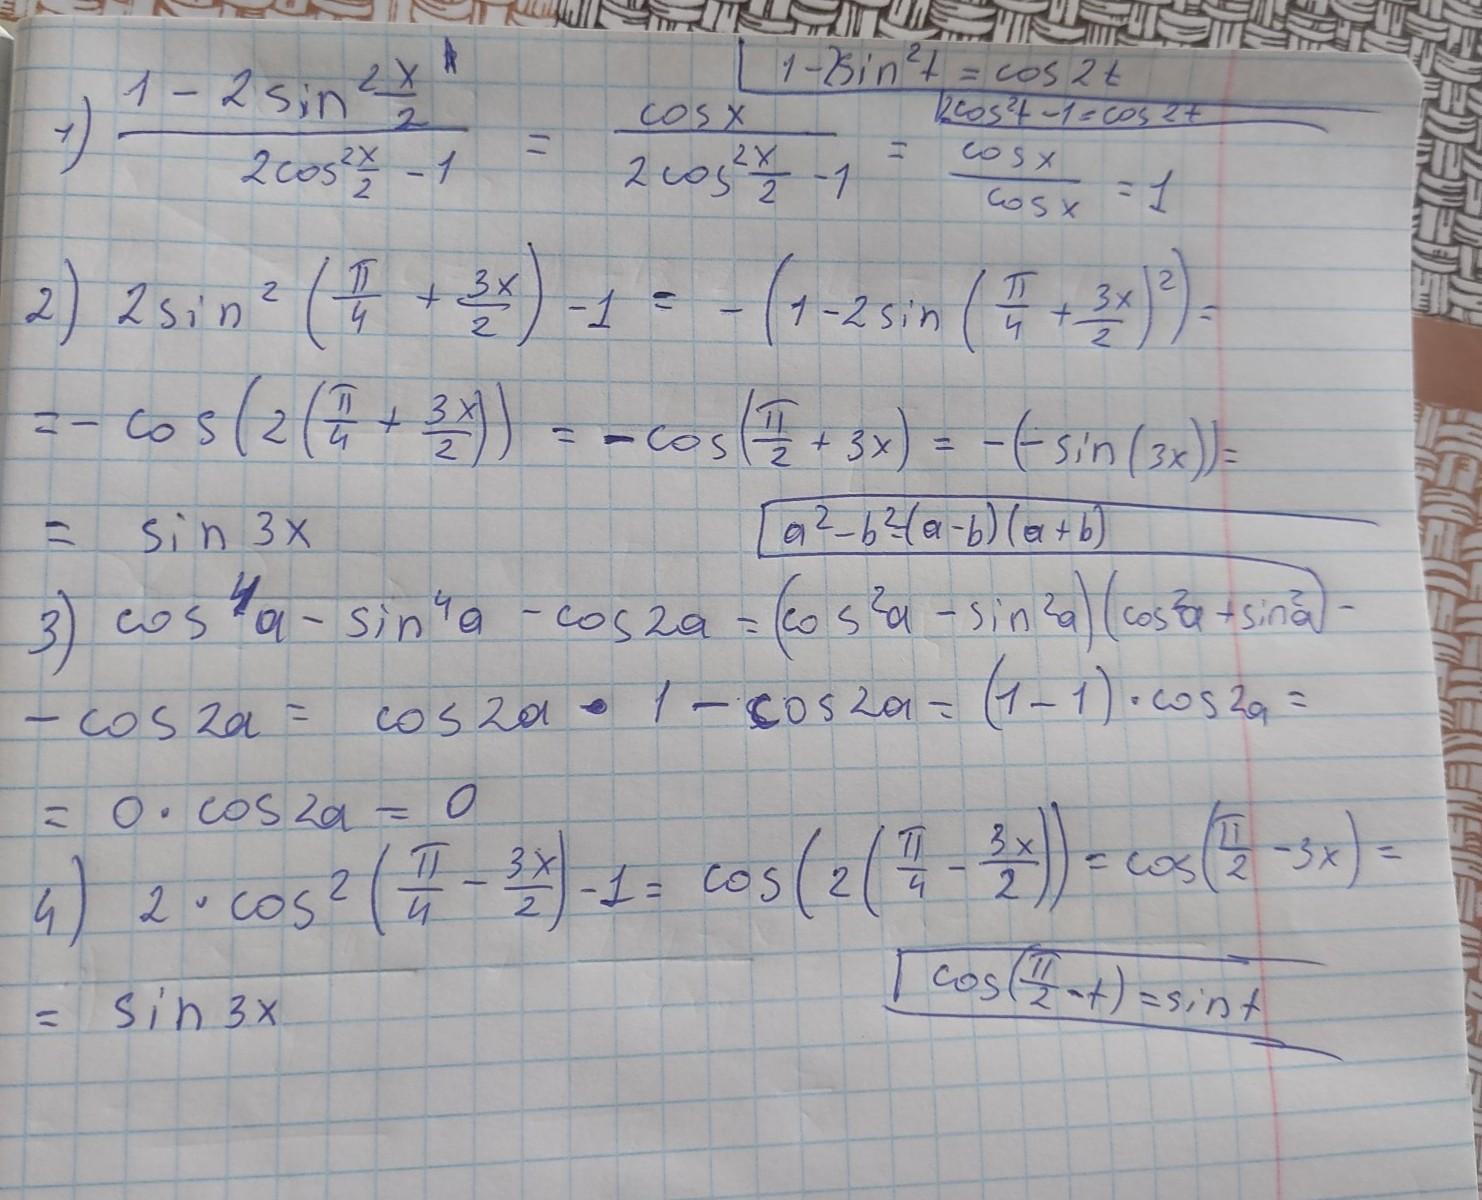 1-2sin²t = cos2t
2cos²t -1=cos2t
1) (1 - 2sin² x/2) / (2cos² x/2 - 1) = cosx / (2cos² x/2 - 1) = cosx / cosx = 1
2) 2sin² (π/4 + 3x/2) -1 = -(1-2sin (π/4 + 3x/2)²) =
= - cos(2(π/4 + 3x/2)) = -cos(π/2 + 3x) = -(-sin(3x)) =
= sin3x
a²-b²=(a-b)(a+b)
3) cos⁴a - sin⁴a - cos2a = (cos²a - sin²a)(cos²a + sin²a) -
- cos2a = cos2a · 1 - cos2a = (1-1)·cos2a =
= 0·cos2a = 0
4) 2·cos² (π/4 - 3x/2) -1 = cos(2(π/4 - 3x/2)) = cos(π/2 -3x) =
cos(π/2 -t) = sint
= sin3x